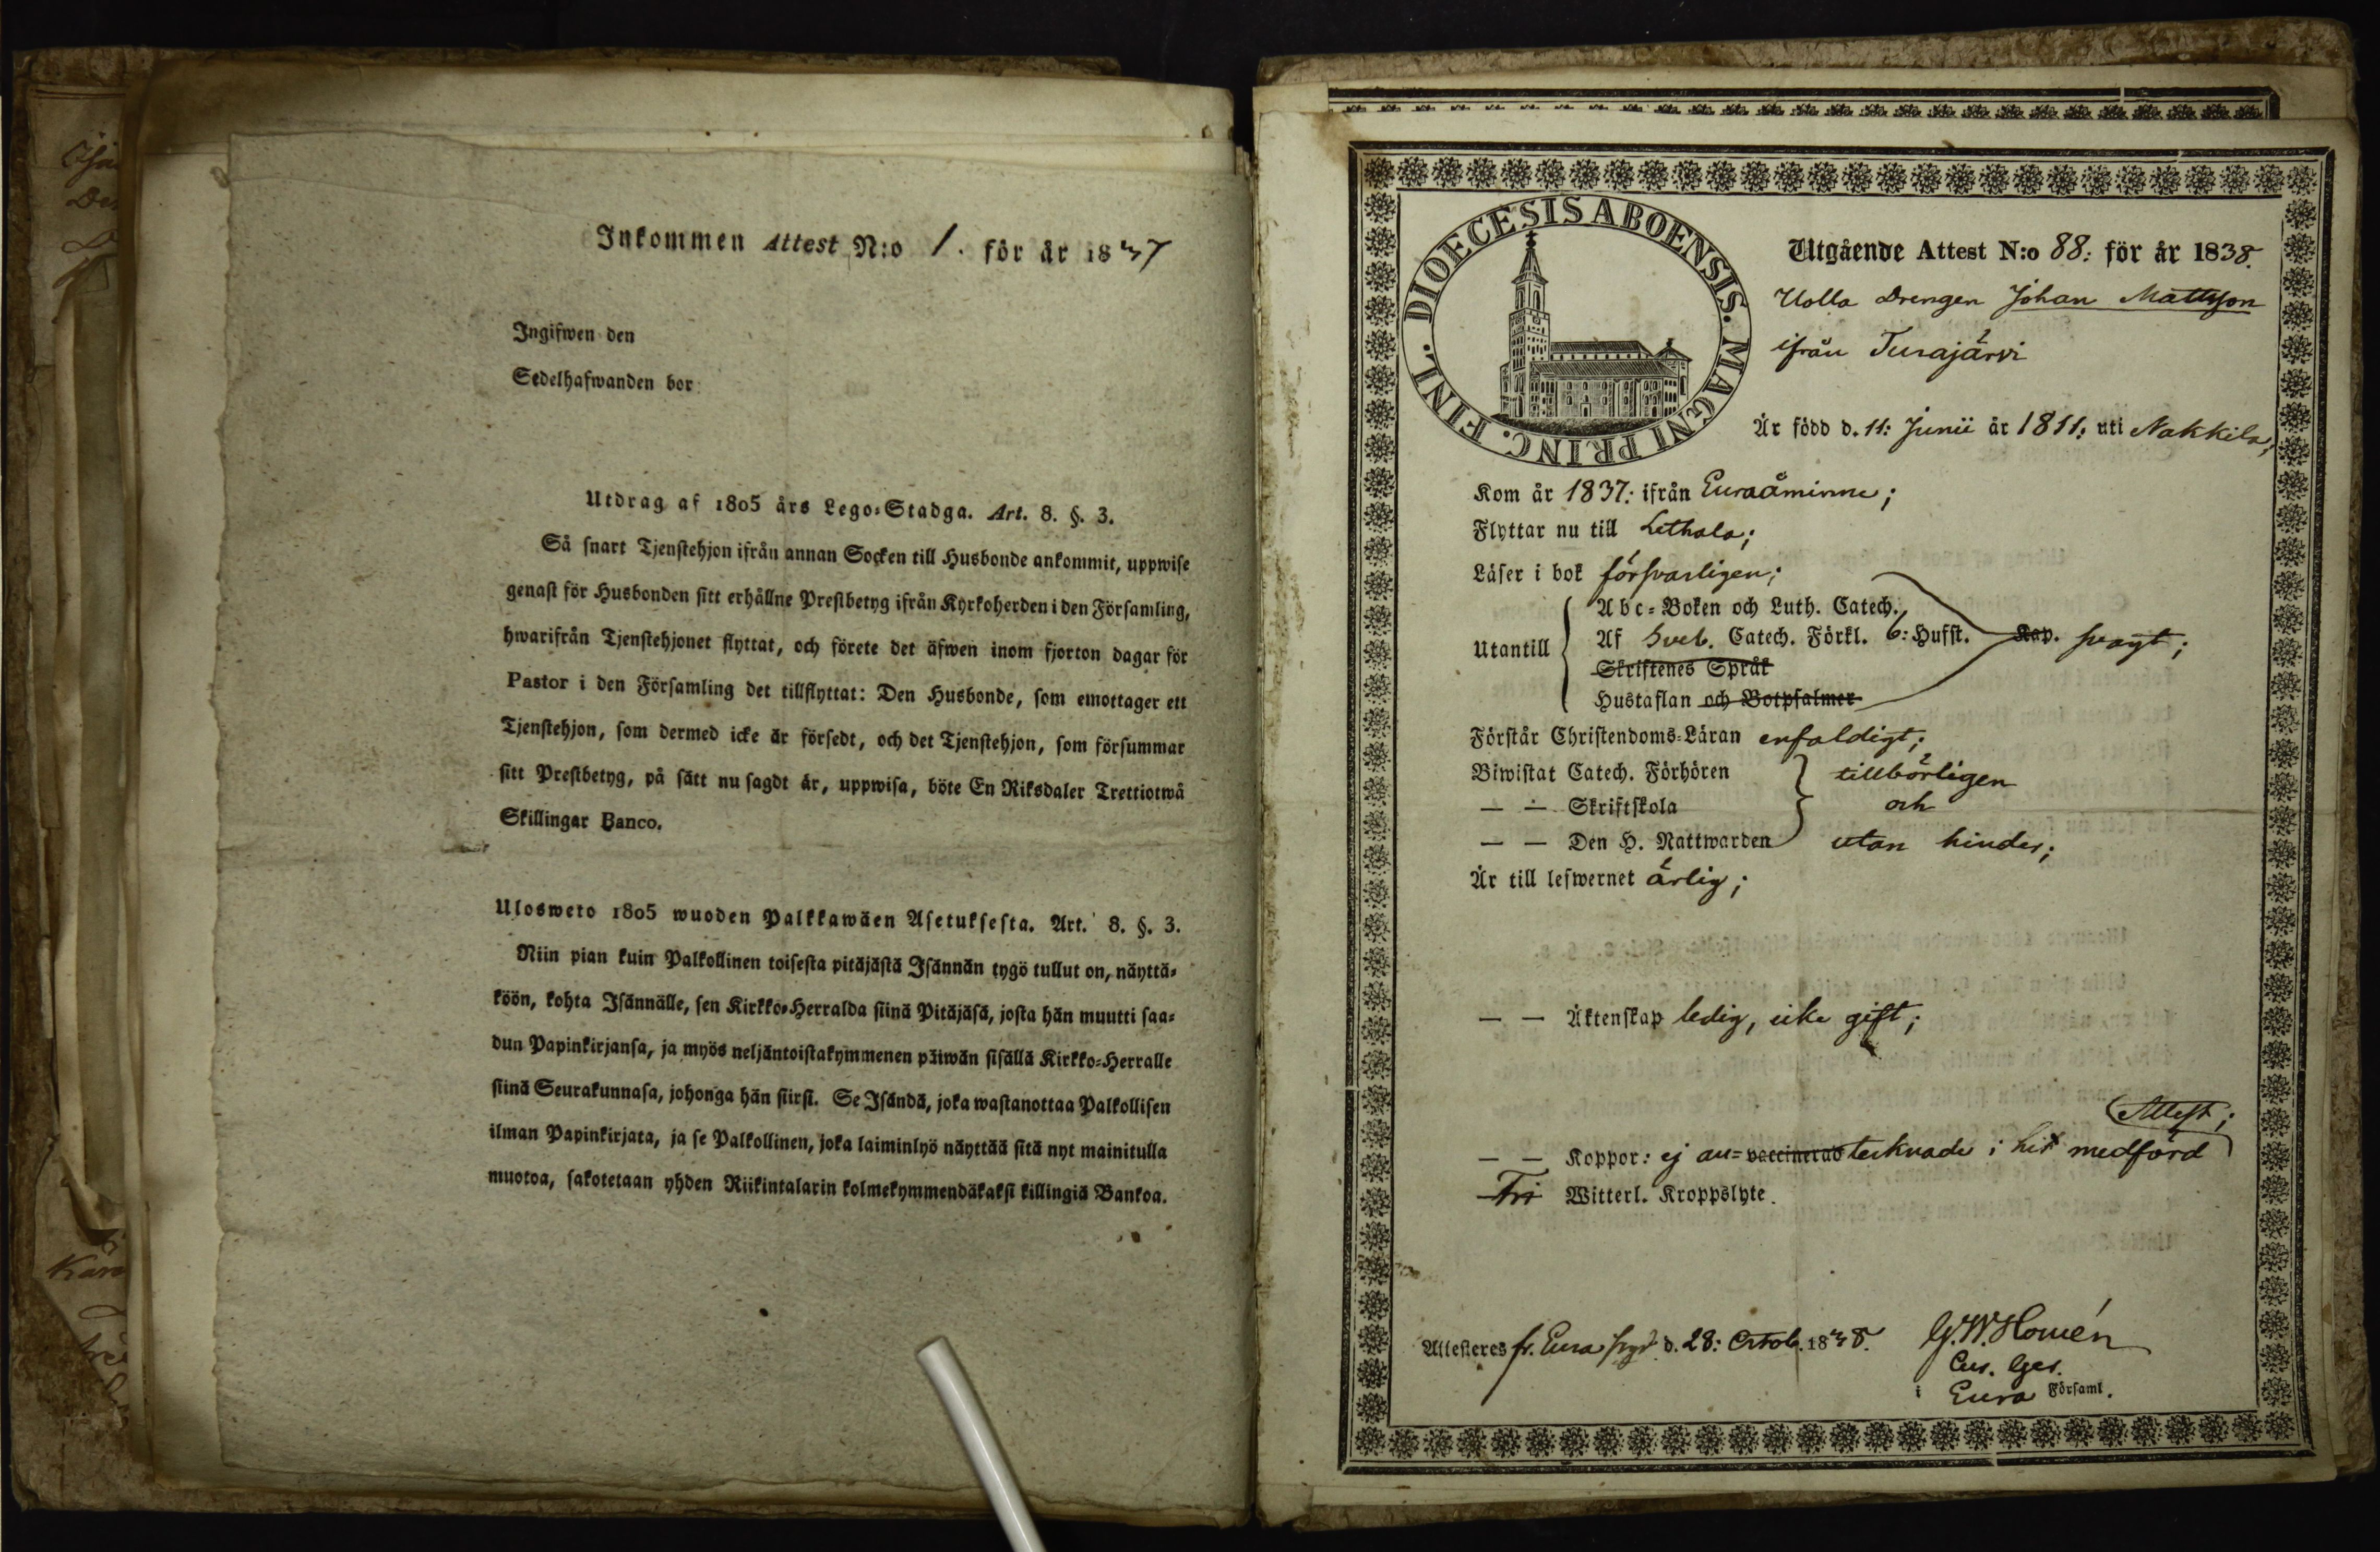 Inkommen Attest N:o 1. för år 1837
Ingifwen den
Sedelhafwanden bor
Utdrag af 1805 års Lego-Stadga. Art. 8. §. 3.
Så snart Tjenstehjon ifrån annan Socken till Husbonde ankommit, uppwise
genast för Husbonden sitt erhållne Prestbetyg ifrån Kyrkoherden i den Församling,
hwarifrån Tjenstehjonet flyttat, och förete det äfwen inom fjorton dagar för
Pastor i den Församling det tillflyttat: Den Husbonde, som emottager ett
Tjenstehjon, som dermed icke är försedt, och det Tjenstehjon, som försummar
sitt Prestbetyg, på sätt nu sagdt är, uppwisa, böte En Riksdaler Trettiotwå
Skillingar Banco.
Ulosweto 1805 wuoden Palkkawäen Asetuksesta. Art. 8. §. 3.
Niin pian kuin Palkollinen toisesta pitäjästä Isännän tygö tullut on, näyttä-
köön, kohta Isännälle, sen Kirkko-Herralda siinä Pitäjäsä, josta hän muutti saa-
dun Papinkirjansa, ja myös neljäntoistakymmenen päiwän sisällä Kirkko-Herralle
siinä Seurakunnasa, johonga hän siirsi. Se Isändä, joka wastanottaa Palkollisen
ilman Papinkirjata, ja se Palkollinen, joka laiminlyö näyttää sitä nyt mainitulla
muotoa, sakotetaan yhden Riikintalarin kolmekymmendäkaksi killingiä Bankoa.
DIOECESIS ABOENSIS. MAGNI PRINC. FINL.
Utgående Attest N:o 88: för år 1838.
Uolla Drengen Johan Mattsson
ifrån Turajärvi
Är född d. 11: Junii år 1811: uti Nakkila;
Kom år 1837: ifrån Euraåminne;
Flyttar nu till Lethala;
Läser i bok försvarligen;
Utantill
Abc-Boken och Luth. Catech.
Af Sveb. Catech. Förkl. 6: Hufst. Kap. svagt;
Skriftenes Språk
Hustaflan och Botpsalmer
Förstår Christendoms-Läran enfaldigt;
Biwistat Catech. Förhören tillbörligen
— — Skriftskola och
— — Den H. Nattwarden utan hinder;
Är till lefwernet ärlig;
— — Äktenskap ledig, icke gift;
Attest;
— — Koppor: ej an= vaccinerad tecknade i hit medförd
Fri Witterl. Kroppslyte.
Attesteres fr. Eura d. 28: Octob. 1838. G. W. Homén
Cur. Ger.
i Eura Församl.